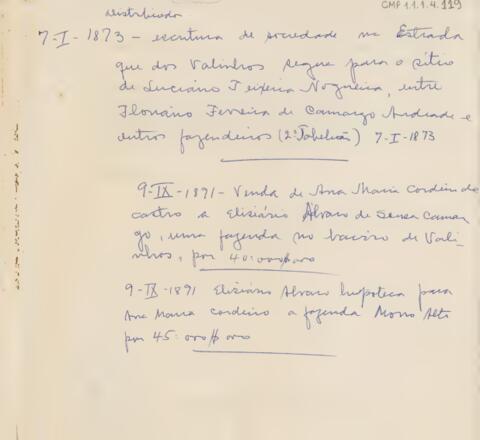 CMP 1.1.1.4.119
Distribuidor
7-I-1873 - escritura de sociedade na Estrada
que dos Valinhos segue para o sítio
de Luciano Teixeira Nogueira, entre
Floriano Ferreira de Camargo Andrade e
outros fazendeiros (2º Tabelião) 7-I-1873
9-IX-1891 - Venda de Ana Maria Cordeiro de
castro a Elisiário Alvaro de Sousa Camar
go, uma fazenda no bairro de Vali-
nhos, por 40:000$000
9-IX-1891 Elisiário Alvaro hipoteca para
Ana Maria Cordeiro a fazenda Morro Alto
por 45:000$000